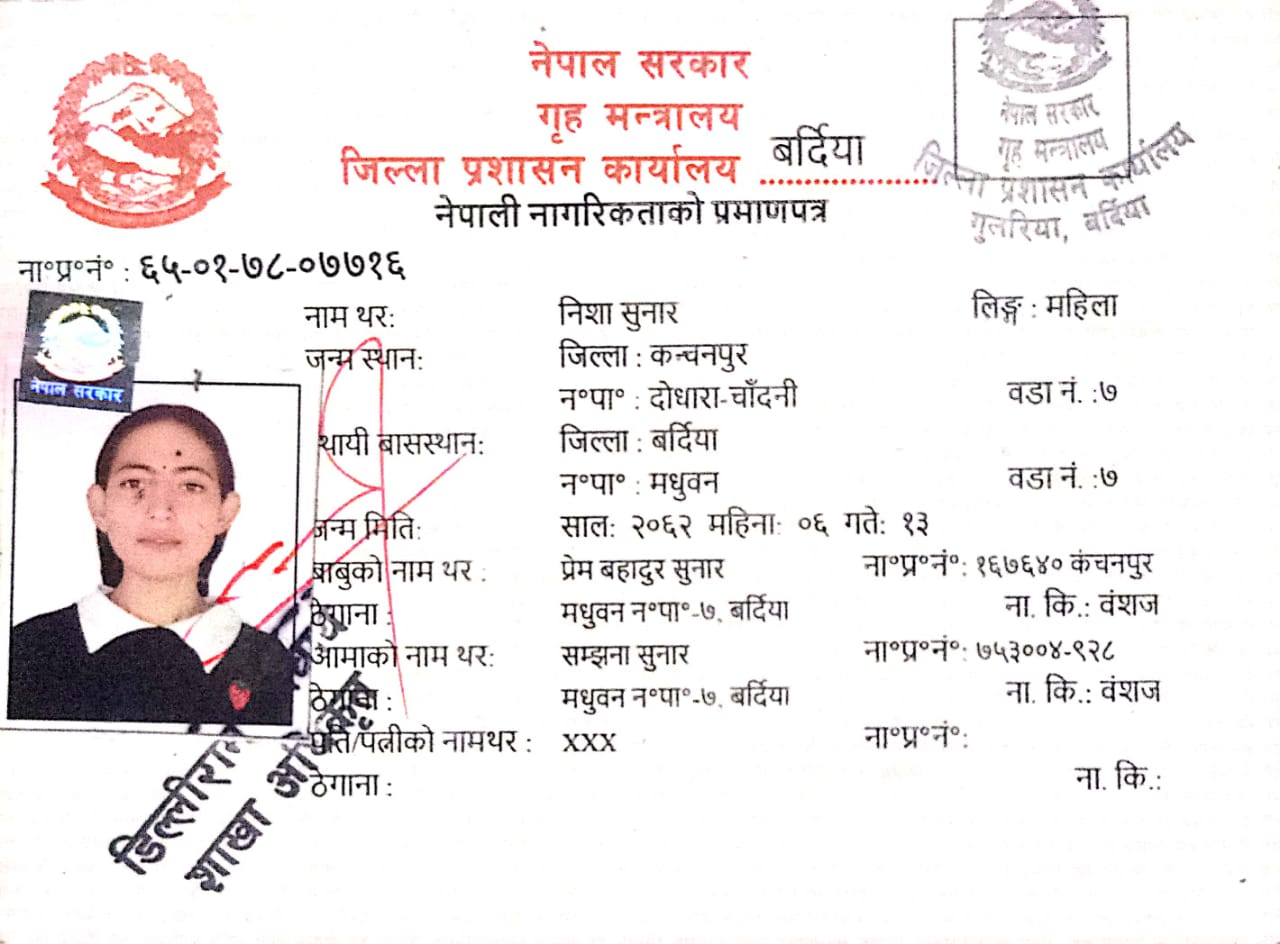 नेपाल सरकार
गृह मन्त्रालय
जिल्ला प्रशासन कार्यालय बर्दिया
नेपाली नागरिकताको प्रमाणपत्र
नेपाल सरकार
गृह मन्त्रालय
जिल्ला प्रशासन कार्यालय
गुलरिया, बर्दिया
ना॰प्र॰नं॰ : ६५-०१-७८-०७७१६
नेपाल सरकार
नाम थर: निशा सुनार लिङ्ग : महिला
जन्म स्थान: जिल्ला : कन्चनपुर
न॰पा॰ : दोधारा-चाँदनी वडा नं. :७
थायी बासस्थान: जिल्ला : बर्दिया
न॰पा॰ : मधुवन वडा नं. :७
जन्म मिति: साल: २०६२ महिना: ०६ गते: १३
बाबुको नाम थर : प्रेम बहादुर सुनार ना॰प्र॰नं॰: १६७६४० कंचनपुर
ठेगाना : मधुवन न॰पा॰-७, बर्दिया ना. कि.: वंशज
आमाको नाम थर: सम्झना सुनार ना॰प्र॰नं॰: ७५३००४-९२८
ठेगाना : मधुवन न॰पा॰-७, बर्दिया ना. कि.: वंशज
पति/पत्नीको नामथर : xxx ना॰प्र॰नं॰:
ठेगाना : ना. कि.:
शाखा